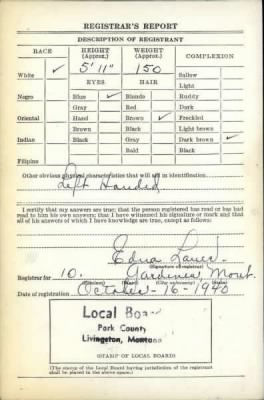 REGISTRAR'S REPORT
DESCRIPTION OF REGISTRANT
RACE HEIGHT (Approx.) WEIGHT (Approx.) COMPLEXION
White ✓ 5' 11" 150 Sallow
EYES HAIR Light
Negro Blue ✓ Blonde Ruddy
Gray Red Dark
Oriental Hazel Brown ✓ Freckled
Brown Black Light brown
Indian Black Gray Dark brown ✓
Bald Black
Filipino
Other obvious physical characteristics that will aid in identification
Left Handed
I certify that my answers are true; that the person registered has read or has had
read to him his own answers; that I have witnessed his signature or mark and that
all of his answers of which I have knowledge are true, except as follows:
Edna
(Signature of registrar)
Registrar for 10. Gardiner Mont.
(Precinct) (Ward) (City or county) (State)
Date of registration October - 16 - 1940
Local Board
Park County
Livingston, Montana
(STAMP OF LOCAL BOARD)
(The stamp of the Local Board having jurisdiction of the registrant
shall be placed in the above space.)